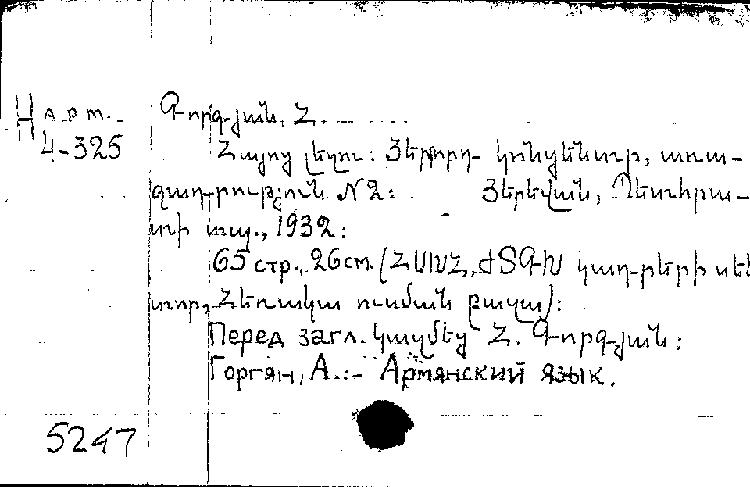 Нарт. Գորգյան, Հ.
4-325 Հայոց լեզու: Յերրորդ կոնցենտր, առա-
ջադրություն №2: Յերեվան, Պետհրա-
տի տպ., 1932:
65 стр., 26 см. (ՀՍԽՀ, ԺՏԳԽ կադրերի սեկ
տոր, Հեռակա ուսման բաժա):
Перед загл. կազմեց Հ. Գորգյան:
Горгян, А. :- Армянский язык.
5247